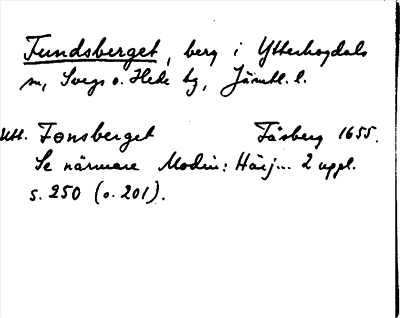 Tundsberget, berg i Ytterhogdals
sn, Svegs o. Hede tg, Jämtl. l.
Utt. Tønsberget Tåsberg 1655.
Se närmare Modin: Härj... 2 uppl.
s. 250 (o. 201).